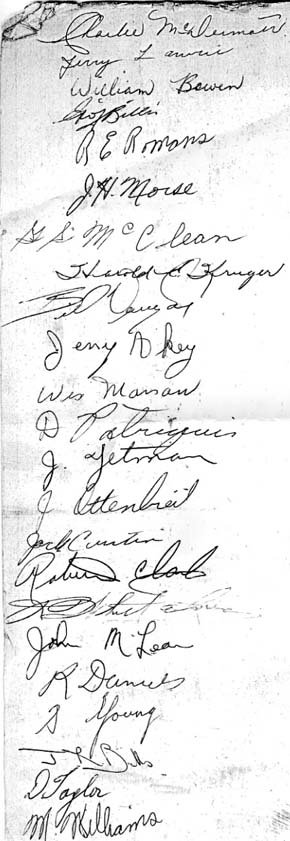 Charlie McDermott
Terry Lawrie
William Bowen
Geo Billis
R E Romans
J. H. Morse
G S McClean
Harold C Kruger
Bill
Jerry Akey
Wes Manson
D Patriquin
J. Yetman
J Ottenbreit
Jack Curtin
Robert Clark
John McLean
R Daniels
S Young
J R Bills
D Taylor
McWilliams